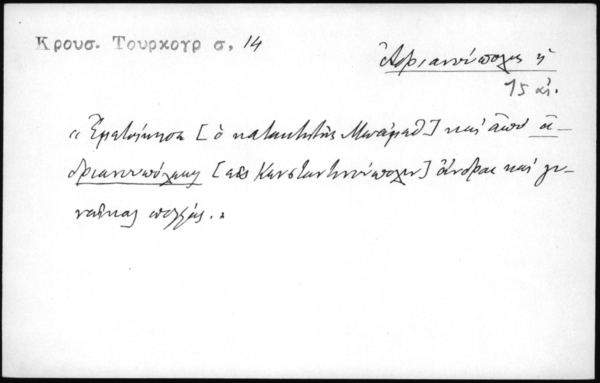 Κρουσ. Τουρκογρ σ, 14
Ἀδριανούπολις ἡ
15 αἰ.
« Ἐμετοίκησε [ὁ κατακτητὴς Μωάμεθ] καὶ ἀπὸ ἀ-
δριανουπόλεως [εἰς Κωνσταντινούπολιν] ἄνδρας καὶ γυ-
ναῖκας πολλάς. »